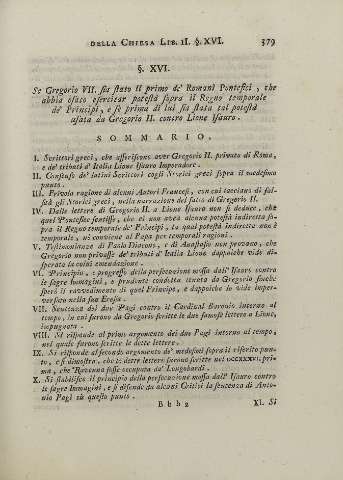 DELLA CHIESA LIB. II. §. XVI. 379
§. XVI.
Se Gregorio VII. sia stato il primo de' Romani Pontefici, che
abbia osato esercitar potestà sopra il Regno temporale
de' Principi, e se prima di lui sia stata tal potestà
usata da Gregorio II. contro Lione Isauro.
SOMMARIO.
I. Scrittori greci, che asseriscono aver Gregorio II. privato di Roma,
e de' tributi d' Italia Lione Isauro Imperadore.
II. Consenso de' latini Scrittori cogli Storici greci sopra il medesimo
punto.
III. Frivola ragione di alcuni Autori Francesi, con cui tacciano di fal-
sità gli Storici greci, nella narrazione del fatto di Gregorio II.
IV. Dalle lettere di Gregorio II. a Lione Isauro non si deduce, che
quel Pontefice sentisse, che ei non avea alcuna potestà indiretta so-
pra il Regno temporale de' Principi, la qual potestà indiretta non è
temporale, nè conviene al Papa per temporali ragioni.
V. Testimonianze di Paolo Diacono, e di Anastasio non provano, che
Gregorio non privasse de' tributi d' Italia Lione dappoichè vide di-
sperata la colui emendazione.
VI. Principio, e progresso della persecuzione mossa dall' Isauro contra
le sagre Immagini, e prudente condotta tenuta da Gregorio finchè
sperò il ravvedimento di quel Principe, e dappoichè lo vide imper-
versato nella sua Eresia.
VII. Sentenza dei due Pagi contro il Cardinal Baronio intorno al
tempo, in cui furono da Gregorio scritte le due famose lettere a Lione,
impugnata.
VIII. Si risponde al primo argomento dei due Pagi intorno al tempo,
nel quale furono scritte le dette lettere.
IX. Si risponde al secondo argomento de' medesimi sopra il riferito pun-
to, e si dimostra, che le dette lettere furono scritte nel DCCXXVI. pri-
ma, che Ravenna fosse occupata da' Longobardi.
X. Si stabilisce il principio della persecuzione mossa dall' Isauro contro
le sagre Immagini, e si difende da alcuni Critici la sentenza di Anto-
nio Pagi su questo punto.
B b b 2 XI. Si